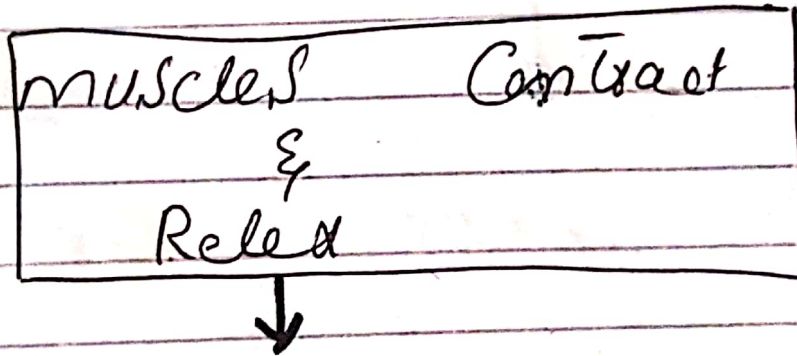 Muscles Contract
&
Relex